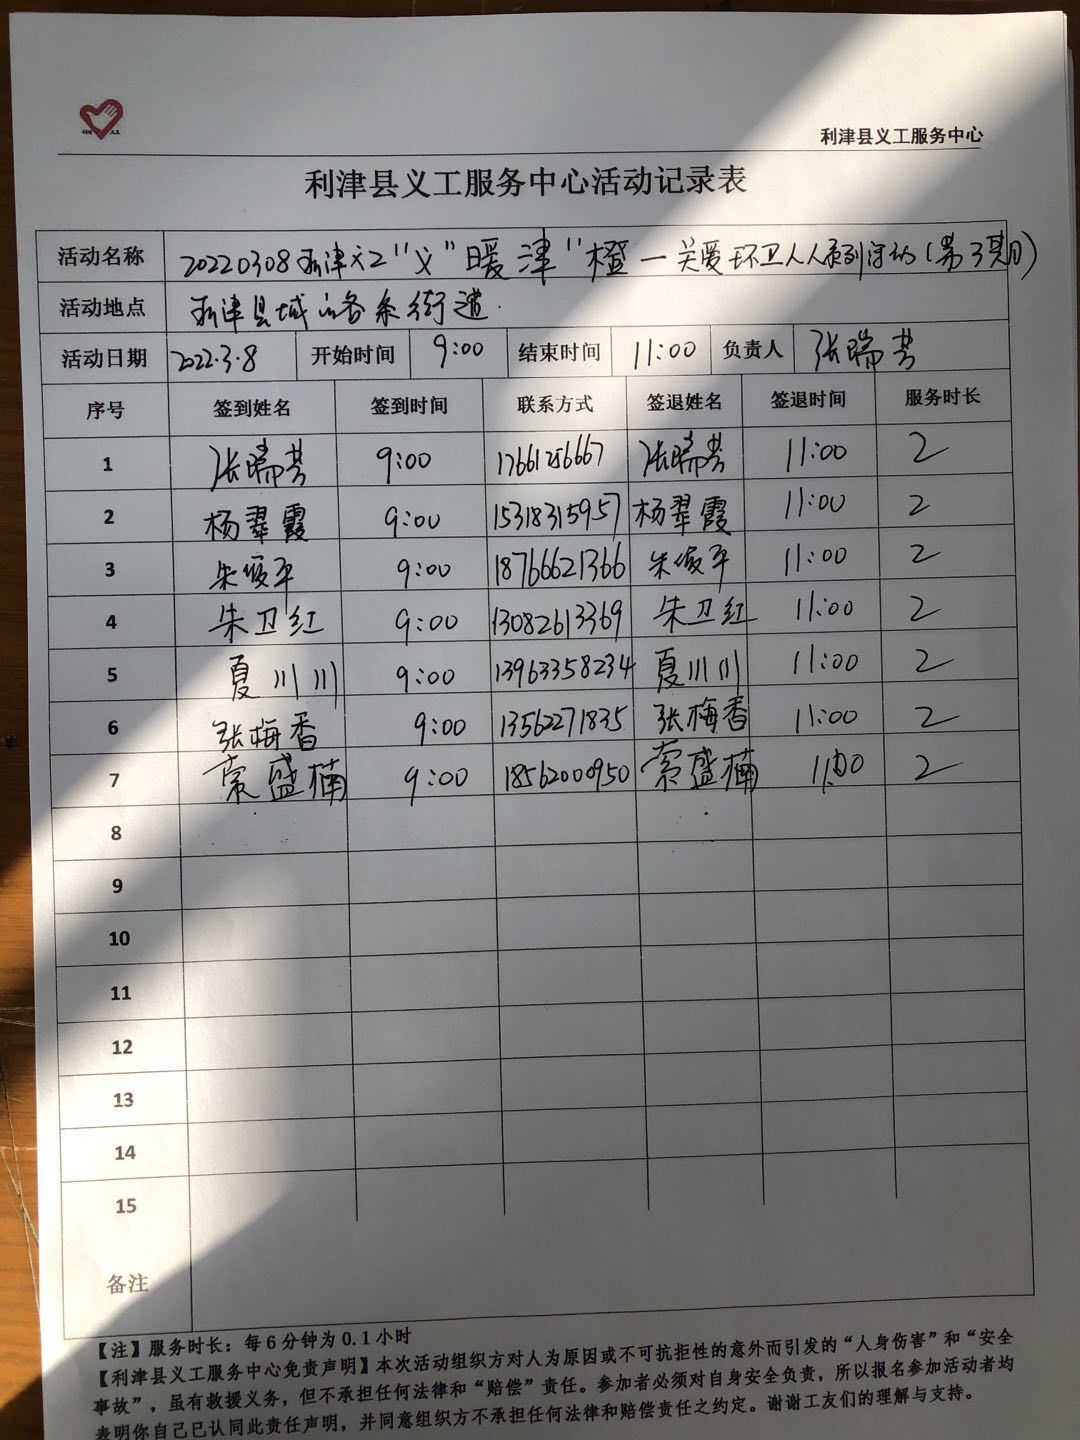 利津县义工服务中心
利津县义工服务中心活动记录表
活动名称 20220308利津义工"义"暖津"橙—关爱环卫人系列活动(第3期)
活动地点 利津县城的各条街道.
活动日期 2022.3.8 开始时间 9:00 结束时间 11:00 负责人 张瑞芳
序号 签到姓名 签到时间 联系方式 签退姓名 签退时间 服务时长
1 张瑞芳 9:00 17661256667 张瑞芳 11:00 2
2 杨翠霞 9:00 15318315957 杨翠霞 11:00 2
3 朱俊平 9:00 18766621366 朱俊平 11:00 2
4 朱卫红 9:00 13082613369 朱卫红 11:00 2
5 夏川川 9:00 13963358234 夏川川 11:00 2
6 张梅香 9:00 13562271835 张梅香 11:00 2
7 索盛楠 9:00 18562000950 索盛楠 11:00 2
8
9
10
11
12
13
14
15
备注
【注】服务时长：每6分钟为0.1小时
【利津县义工服务中心免责声明】本次活动组织方对人为原因或不可抗拒性的意外而引发的“人身伤害”和“安全
事故”，虽有救援义务，但不承担任何法律和“赔偿”责任。参加者必须对自身安全负责，所以报名参加活动者均
表明你自己已认同此责任声明，并同意组织方不承担任何法律和赔偿责任之约定。谢谢工友们的理解与支持。